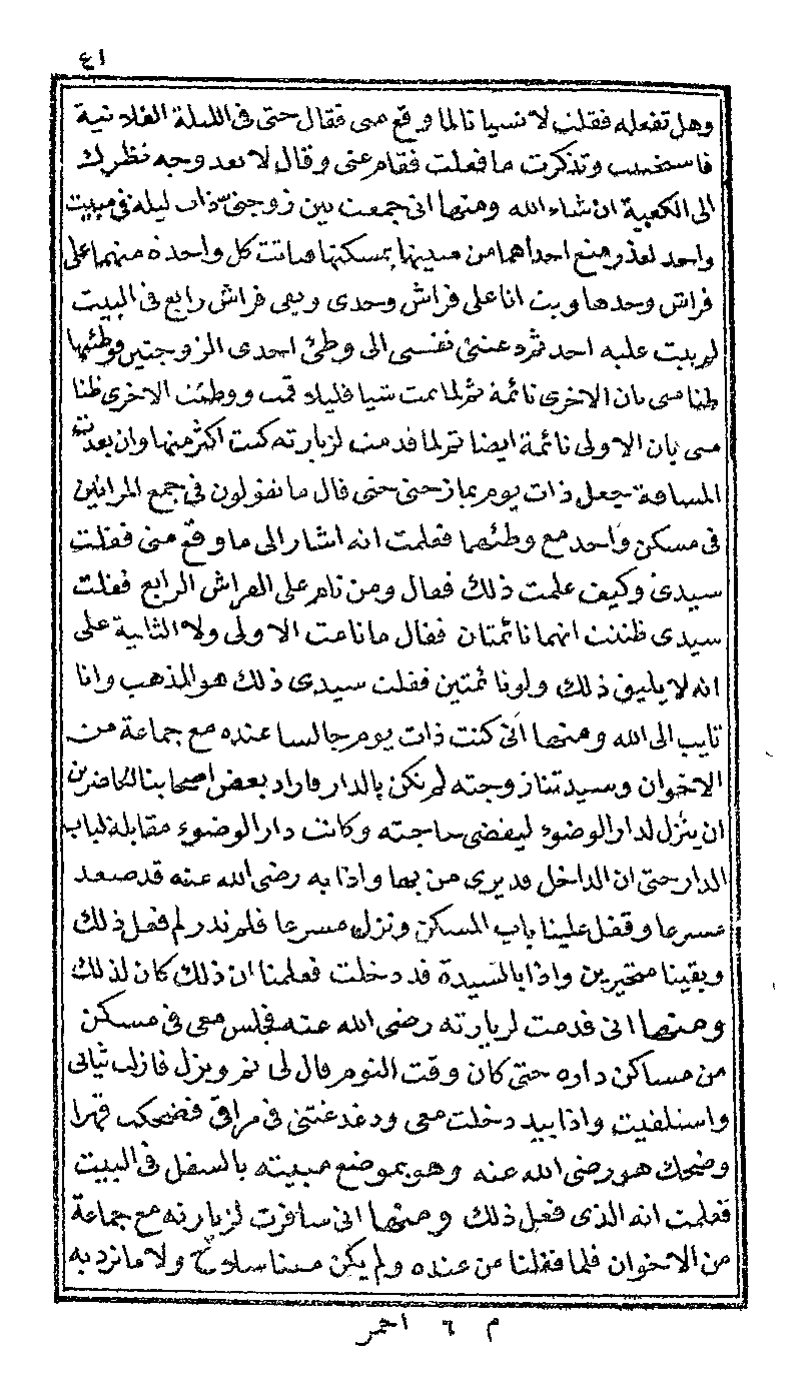 ٤١
وهل تفعله فقلت لا نسيانا لما وقع منى فقال حتى فى الليلة الفلانية
فاستحييت وتذكرت ما فعلت فقام عنى وقال لا تعد وجه نظرك
الى الكعبة ان شاء الله ومنها انى جمعت بين زوجتىّ ذات ليلة فى مبيت
واحد لعذر منع احداهما من مبيتها بمسكنها فباتت كل واحدة منهما على
فراش وحدها وبت انا على فراش وحدى وبقى فراش رابع فى البيت
لم يبت عليه احد ثم دعتنى نفسى الى وطئ احدى الزوجتين فوطئتها
ظنا منى بان الاخرى نائمة ثم لما نمت شيا قليلا قمت ووطئت الاخرى ظنا
منى بان الاولى نائمة ايضا ثم لما قدمت لزيارته كنت اكثر منها وان بعدت
المسافة جعل ذات يوم يمازحنى حتى قال ما تقولون فى جمع المراتين
فى مسكن واحد مع وطئهما فعلمت انه اشار الى ما وقع منى فقلت
سيدى وكيف علمت ذلك فقال ومن نام على الفراش الرابع فقلت
سيدى ظننت انهما نائمتان فقال ما نامت الاولى ولا الثانية على
انه لا يليق ذلك ولو نائمتين فقلت سيدى ذلك هو المذهب وانا
تايب الى الله ومنها انى كنت ذات يوم جالسا عنده مع جماعة من
الاخوان وسيدتنا زوجته لم تكن بالدار فاراد بعض اصحابنا الحاضرين
ان ينزل لدار الوضوء ليقضى حاجته وكانت دار الوضوء مقابلة لباب
الدار حتى ان الداخل قد يرى من بها واذا به رضى الله عنه قد صعد
مسرعا وقفل علينا باب المسكن ونزل مسرعا فلم ندر لم فعل ذلك
وبقينا متحيرين واذا بالسيدة قد دخلت فعلمنا ان ذلك كان لذلك
ومنها انى قدمت لزيارته رضى الله عنه فجلس معى فى مسكن
من مساكن داره حتى كان وقت النوم قال لى نم ونزل فازلت ثيابى
واستلقيت واذا بيد دخلت معى ودغدغتنى فى مراقى فضحكت قهرا
وضحك هو رضى الله عنه وهو بموضع مبيته بالسفل فى البيت
فعلمت انه الذى فعل ذلك ومنها انى سافرت لزيارته مع جماعة
من الاخوان فلما قفلنا من عنده ولم يكن معنا سلاح ولا ما نرد به
م ٦ احمر